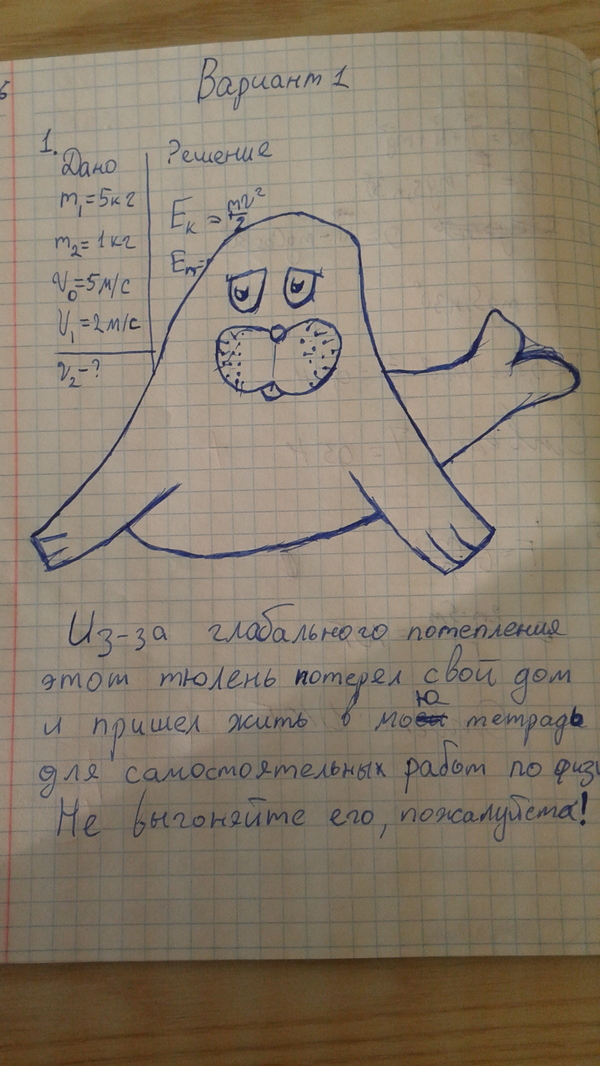 Вариант 1
1.
Дано
Решение
m₁=5кг
m₂=1кг
v₀=5м/с
v₁=2м/с
v₂-?
Eₖ = mv²/2
Из-за глобального потепления
этот тюлень потерял свой дом
и пришел жить в мою тетрадь
для самостоятельных работ по физи
Не выгоняйте его, пожалуйста!